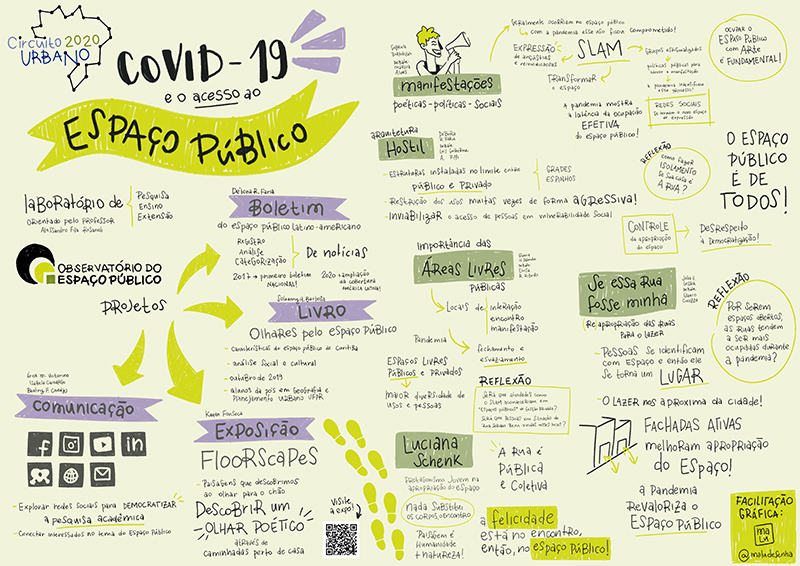 Circuito 2020
URBANO
COVID-19
e o acesso ao
ESPAÇO PÚBLICO
laboratório de
Pesquisa
Ensino
Extensão
orientado pelo professor
OBSERVATÓRIO DO
ESPAÇO PÚBLICO
PROJETOS
Débora R. Faria
Boletim
do espaço público latino-americano
Registro
Análise
Categorização
De notícias
2017 → primeiro boletim
NACIONAL!
2020 → ampliação
da cobertura
AMÉRICA LATINA!
LIVRO
Olhares pelo espaço PÚBLICO
- Características do espaço público de Curitiba
- análise social e cultural
- outubro de 2019
- alunos da pós em Geografia e
Planejamento Urbano UFPR
comunicação
- Explorar redes sociais para DEMOCRATIZAR
a pesquisa acadêmica
- Conectar interessados no tema do Espaço Público
Kauan Fonseca
EXPOSIÇÃO
FLOORSCAPES
- Paisagens que descobrimos
ao olhar para o chão
DESCOBRIR UM
OLHAR POÉTICO
através de
caminhadas perto de casa
VISITE
a expo!
manifestações
poéticas - políticas - sociais
Geralmente ocorriam no espaço público
com a pandemia esse uso ficou comprometido!
EXPRESSÃO
de angústias
e reivindicações
SLAM
TRANSFORMAR
o espaço
Grupos estigmatizados
políticas públicas para
a manifestação
a pandemia
esse processo!
REDES SOCIAIS
se tornam o novo espaço
de expressão
a pandemia mostra
a latência da ocupação
EFETIVA
do espaço público!
OCUPAR O
ESPAÇO PÚBLICO
com ARTE
é FUNDAMENTAL!
arquitetura
HOSTIL
- ESTRUTURAS instaladas no limite entre
público e PRIVADO
GRADES
ESPINHOS
- RESTRIÇÃO dos usos muitas vezes de forma AGRESSIVA!
- INVIABILIZAR o acesso de pessoas em vulnerabilidade social
REFLEXÃO
como fazer
ISOLAMENTO
se sua casa é
A RUA?
O ESPAÇO
PÚBLICO
É DE
TODOS!
CONTROLE
da apropriação
do espaço
DESRESPEITO
à Democratização!
Importância das
ÁREAS LIVRES
PÚBLICAS
Locais de
interação
encontro
manifestação
Pandemia
fechamento e
esvaziamento
ESPAÇOS LIVRES
PÚBLICOS e PRIVADOS
MAIOR diversidade de
usos e pessoas
REFLEXÃO
Será que atividades como
o SLAM aconteceriam em
"espaços públicos" de gestão privada?
Será que pessoas em situação de
rua seriam bem vindas nesse local?
Se essa Rua
fosse minha
Reapropriação das Ruas
para o lazer
- PESSOAS se identificam
com espaço e então ele
se torna um LUGAR
- O LAZER nos aproxima da cidade!
REFLEXÃO
POR SEREM
espaços abertos,
as ruas tendem
a ser mais
ocupadas durante
a pandemia?
FACHADAS ATIVAS
melhoram apropriação
do Espaço!
a Pandemia
REvaloriza o
ESPAÇO PÚBLICO
Luciana
Schenk
Protagonismo Jovem na
apropriação do espaço
nada Substitui
os corpos, o encontro
Paisagem é
Humanidade
+ natureza!
A Rua é
PÚBLICA
e Coletiva
a felicidade
está no encontro,
então, no espaço público!
FACILITAÇÃO
GRÁFICA:
MALU
@maludesenha